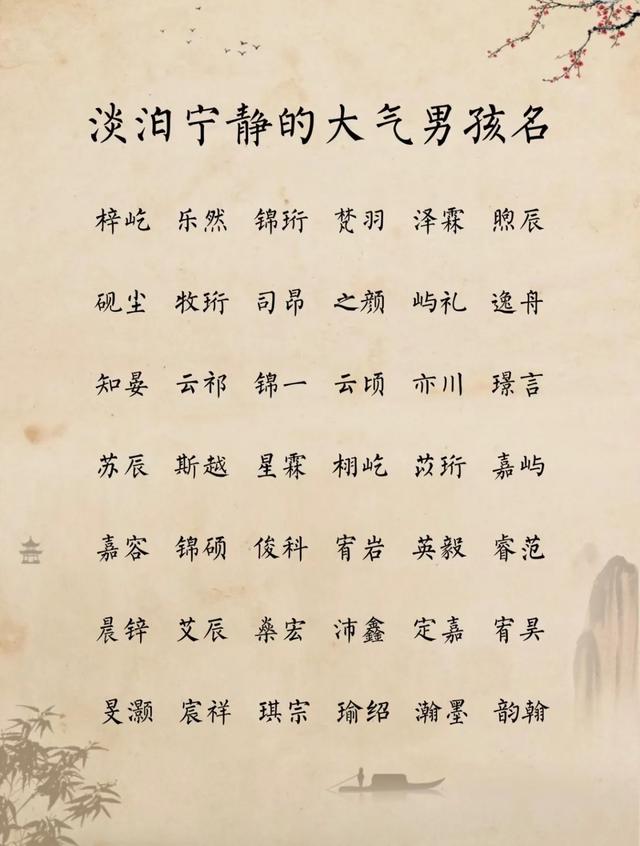 淡泊宁静的大气男孩名
梓屹 乐然 锦珩 梵羽 泽霖 煦辰
砚尘 牧珩 司昂 之颜 屿礼 逸舟
知晏 云祁 锦一 云顷 亦川 璟言
苏辰 斯越 星霖 栩屹 苡珩 嘉屿
嘉容 锦硕 俊科 宥岩 英毅 睿范
晨锌 艾辰 燊宏 沛鑫 定嘉 宥昊
旻灏 宸祥 琪宗 瑜绍 瀚墨 韵翰